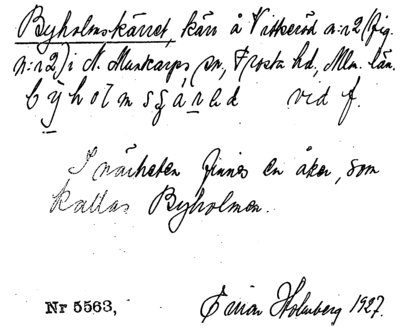 Byholmskärret, kärr å Vittseröd n:r 2 (fig.
n:r 2) i N. Munkarps sn, Frosta hd, Mlm. län.
vid f.
I närheten finnes en åker, som
kallas Byholmen.
Nr 5563, Einar Holmberg 1927.